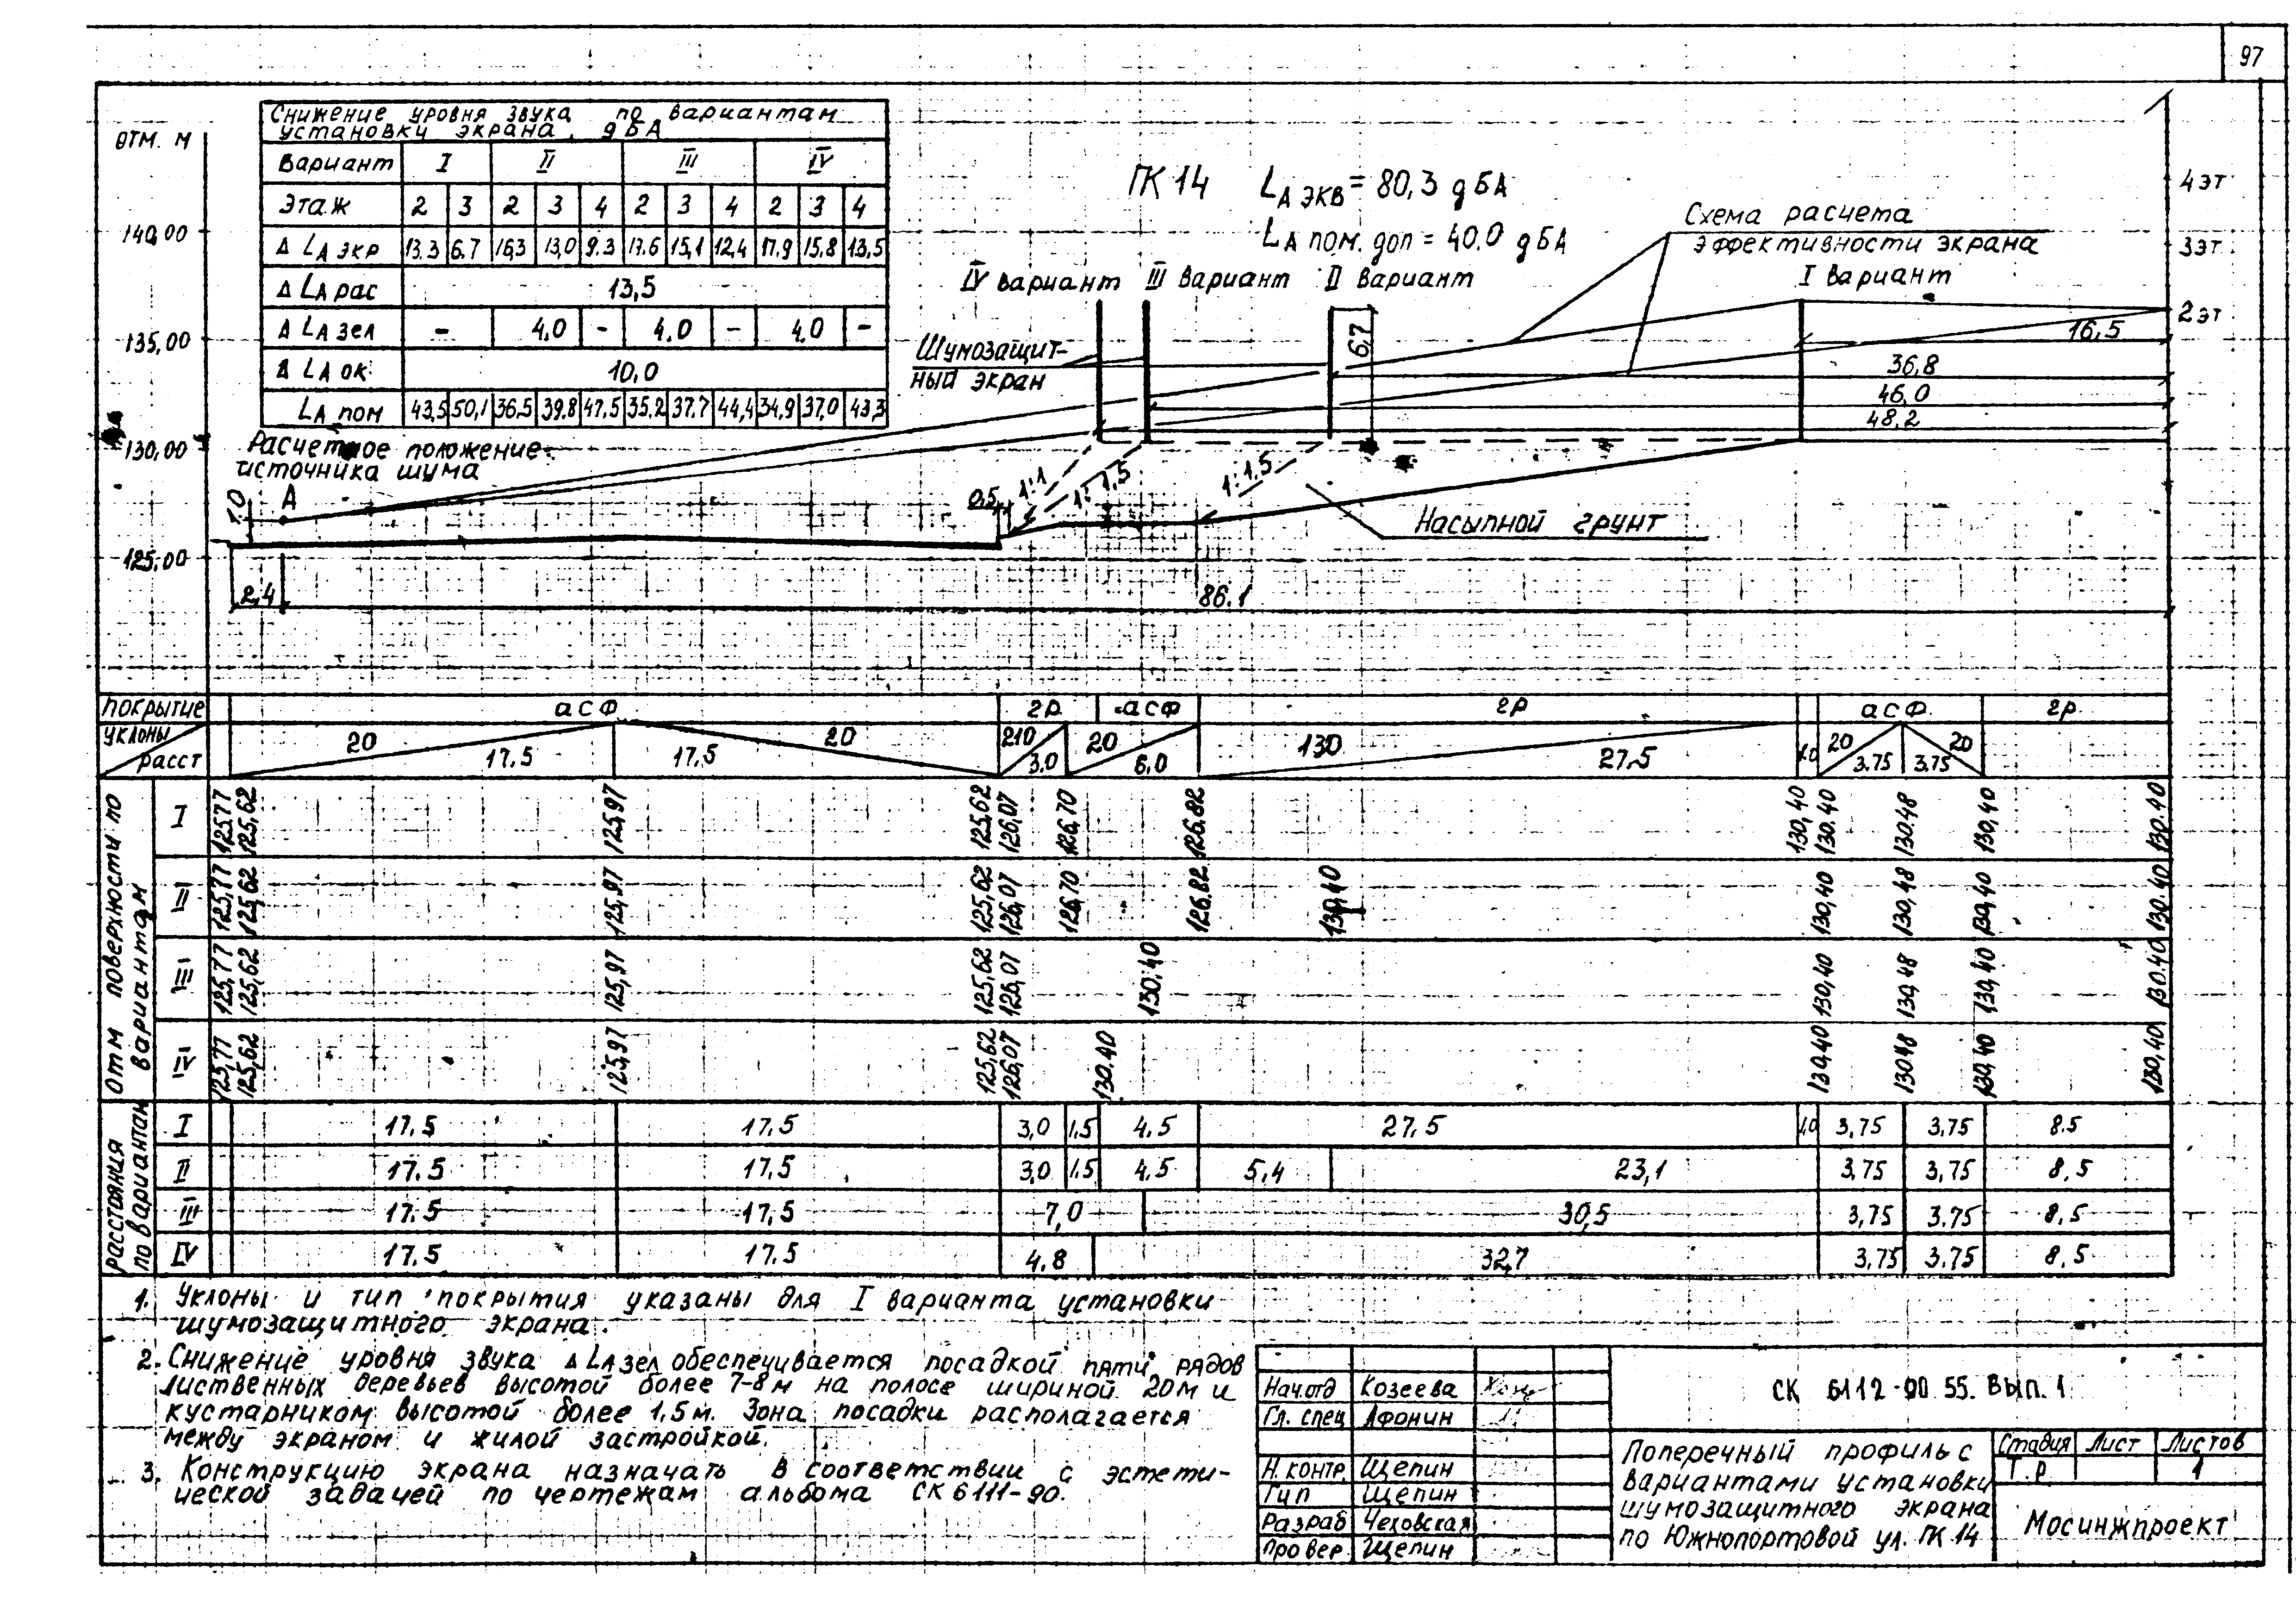 97
ОТМ. М
140,00
135,00
130,00
125,00
Снижение уровня звука по вариантам
установки экрана, дБА
Вариант I II III IV
Этаж 2 3 2 3 4 2 3 4 2 3 4
Δ LА экр 13.3 6.7 16,3 13,0 9.3 17.6 15,1 12,4 17.9 15,8 13,5
Δ LА рас 13,5
Δ LА зел – 4,0 – 4,0 – 4,0 –
Δ LА ок 10,0
LА пом 43,5 50,1 36,5 39,8 47,5 35,2 37.7 44,4 34,9 37,0 43,3
ПК 14 LА ЭКВ = 80,3 дБА
LА пом. доп = 40.0 дБА
Схема расчета
эффективности экрана
IV вариант III вариант II вариант I вариант
4 эт
3 эт
2 эт
Шумозащит-
ный экран
6,7
16,5
36,8
46,0
48,2
Расчетное положение
источника шума
1,0
А
0,5
1:1
1:1,5
1:1,5
Насыпной грунт
2,4
86.1
покрытие асф гр. асф гр асф. гр.
уклоны 20 20 210 20 130 20 20
расст 17.5 17.5 3.0 6.0 27.5 1.0 3.75 3.75
Отм поверхности по вариантам
I 125,77 125,62 125,97 125,62 126,07 126,70 126.82 130,40 130.40 130.48 130,40 130.40
II 125,77 125,62 125,97 125,62 126,07 126.70 126.82 130,40 130,40 130,48 130,40 130.40
III 125,77 125,62 125,97 125,62 126,07 130.40 130,40 130,48 130,40 130.40
IV 125,77 125,62 125,97 125,62 126,07 130.40 130.40 130.48 130,40 130,40
Расстояния по вариантам
I 17.5 17.5 3,0 1,5 4.5 27.5 1,0 3,75 3.75 8.5
II 17.5 17.5 3,0 1,5 4.5 5,4 23,1 3,75 3,75 8,5
III 17.5 17.5 7,0 30,5 3,75 3.75 8,5
IV 17.5 17.5 4.8 32,7 3,75 3.75 8,5
1. Уклоны и тип покрытия указаны для I варианта установки
шумозащитного экрана.
2. Снижение уровня звука Δ LА зел обеспечивается посадкой пяти рядов
лиственных деревьев высотой более 7-8 м на полосе шириной 20 м и
кустарником высотой более 1,5 м. Зона посадки располагается
между экраном и жилой застройкой.
3. Конструкцию экрана назначать в соответствии с эстети-
ческой задачей по чертежам альбома СК 6111-90.
Нач.отд Козеева
Гл. спец Афонин
Н. контр. Щепин
Гип Щепин
Разраб Чеховская
Провер. Щепин
СК 6112-90 55. Вып. 1
Поперечный профиль с
вариантами установки
шумозащитного экрана
по Южнопортовой ул. ПК 14
Стадия Лист Листов
Т.р 1
Мосинжпроект